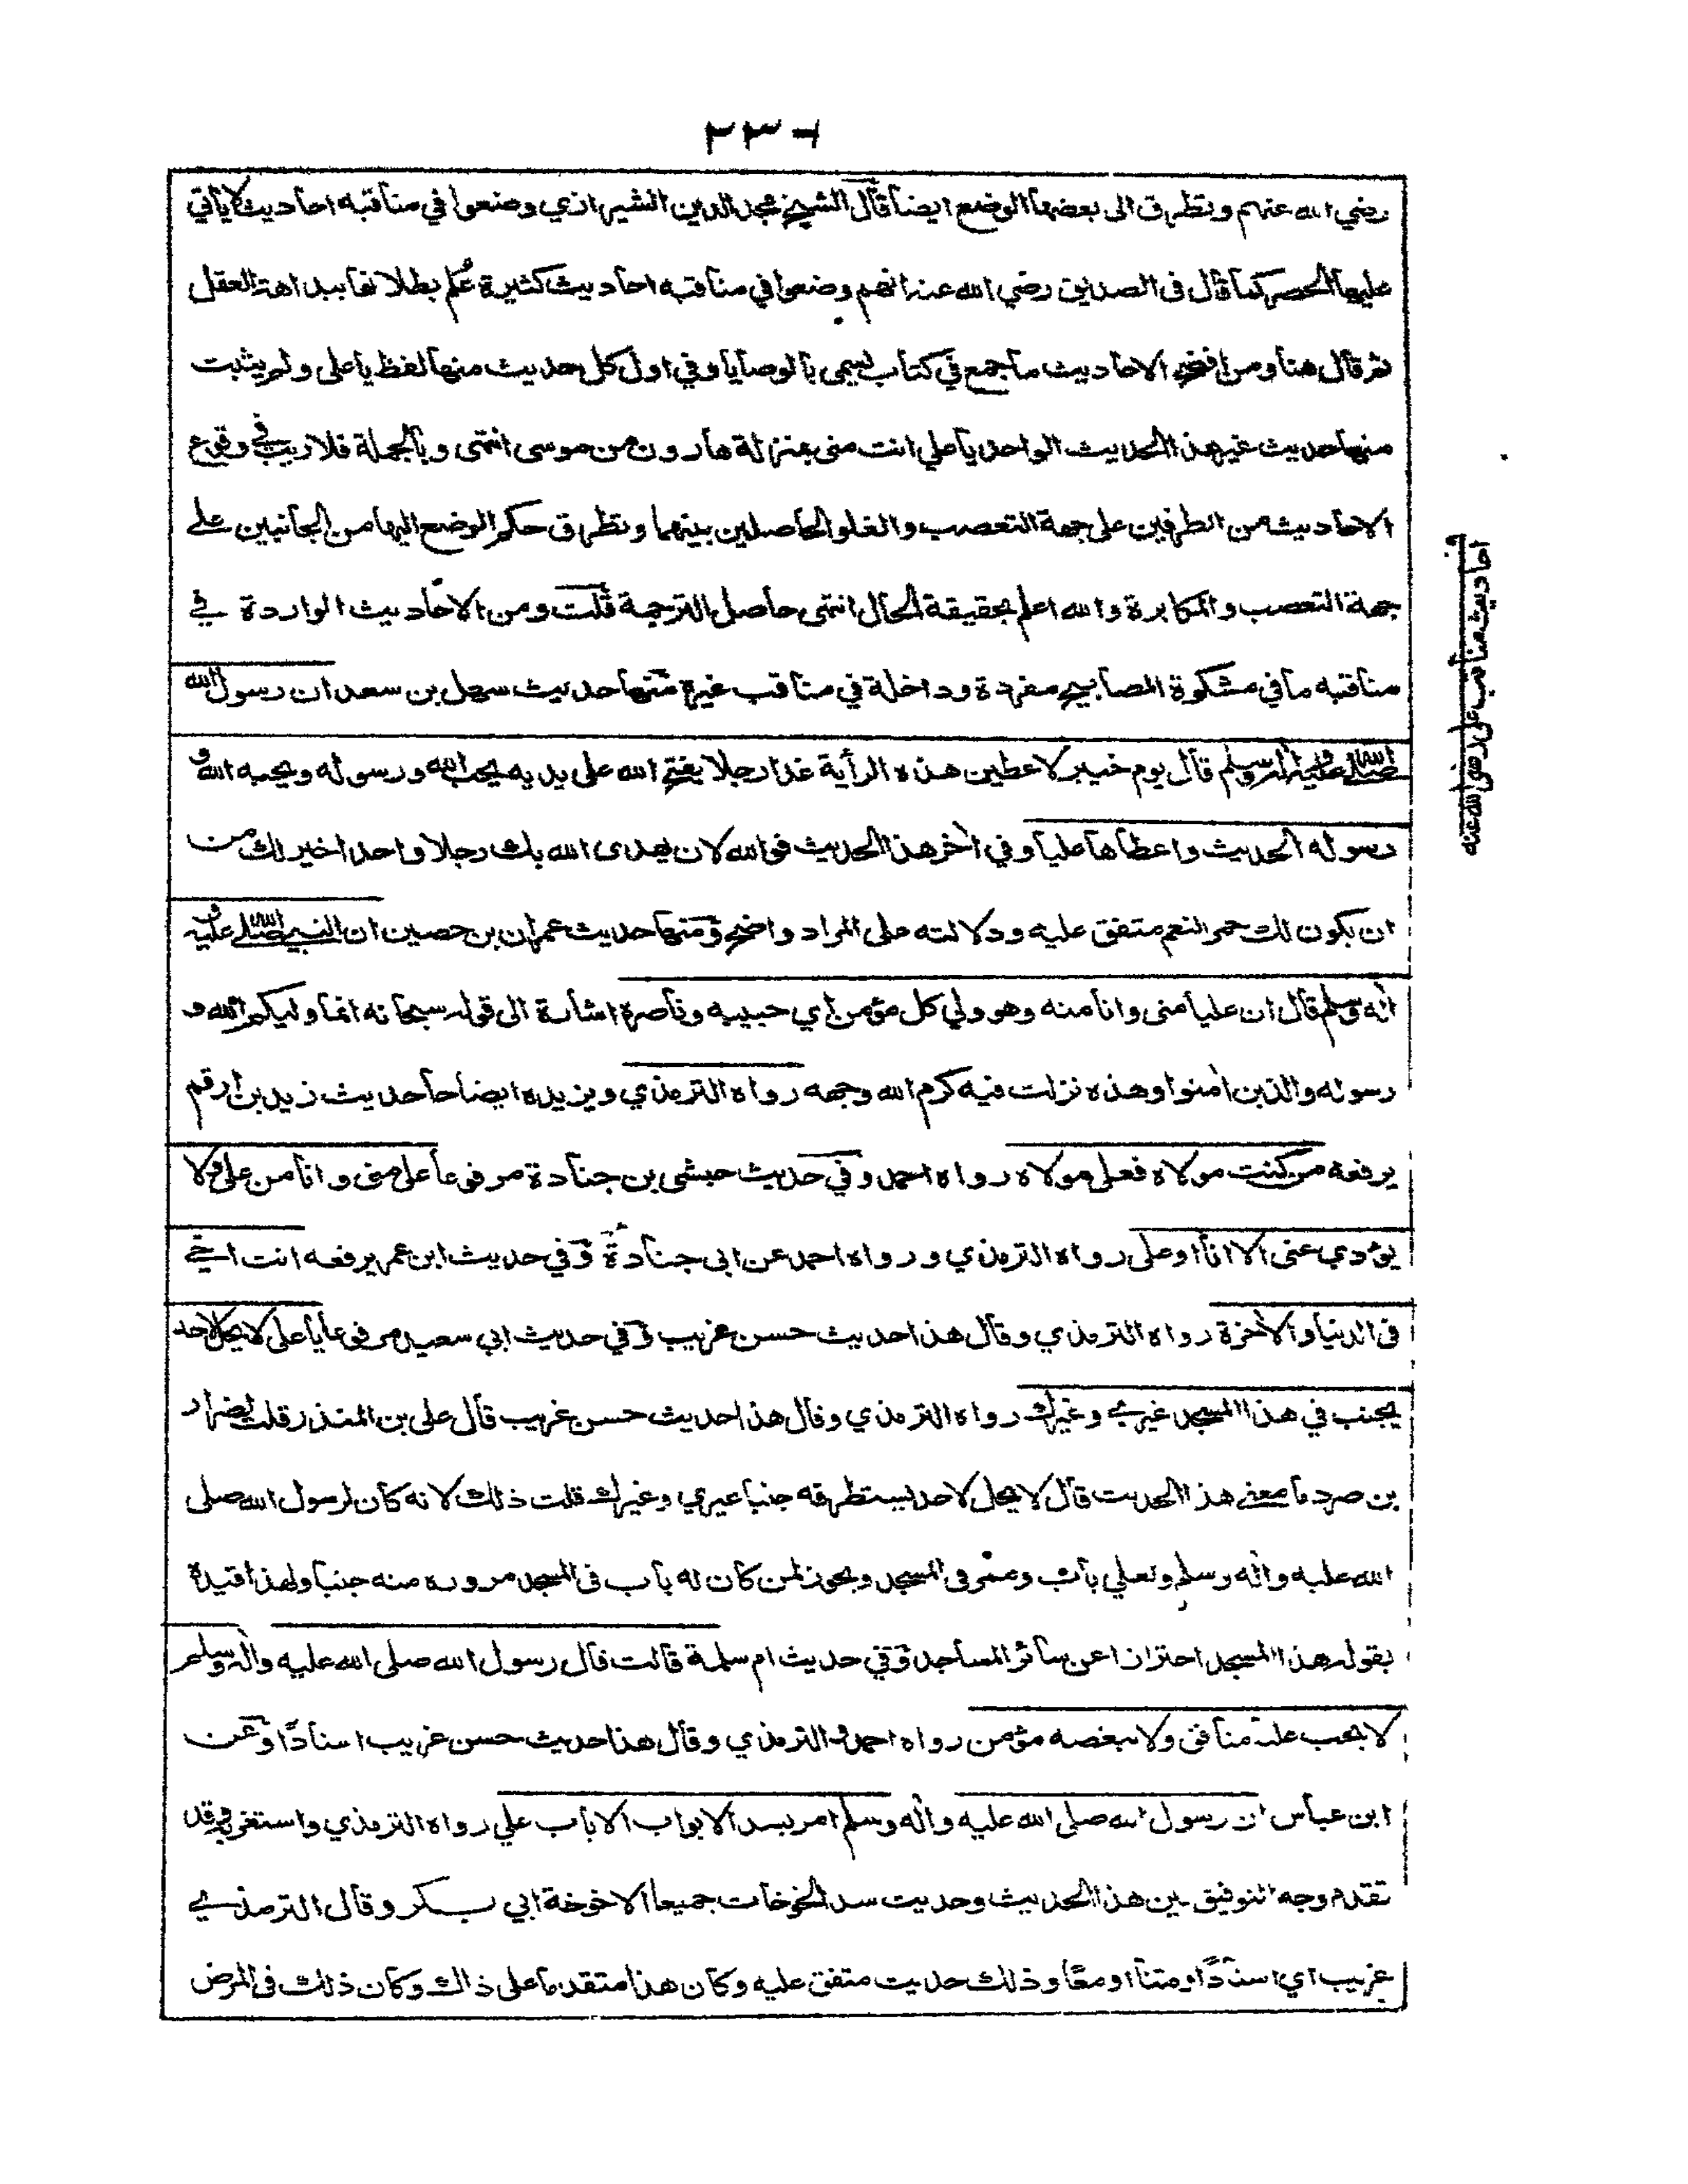 ٢٣٦
رضي الله عنهم وتطرق الى بعضها الوضع ايضا قال الشيخ مجد الدين الشيرازي وضعوا في مناقبه احاديث لا ياتي
عليها الحصر كما قال فى الصديق رضي الله عنه انهم وضعوا في مناقبه احاديث كثيرة عُلم بطلانها ببداهة العقل
ثم قال هنا ومن افضح الاحاديث ما جمع في كتاب يسمى بالوصايا وفي اول كل حديث منها لفظ يا على ولم يثبت
منها حديث غير هذا الحديث الواحد يا علي انت منى بمنزلة هارون من موسى انتهى وبالجملة فلا ريب في وقوع
الاحاديث من الطرفين على جهة التعصب والغلو الحاصلين بينهما وتطرق حكم الوضع اليها من الجانبين على
جهة التعصب والمكابرة والله اعلم بحقيقة الحال انتهى حاصل الترجمة قلت ومن الاحاديث الواردة في
مناقبه ما في مشكوة المصابيح مفردة وداخلة في مناقب غيره منها حديث سهل بن سعد ان رسول الله
صلى الله عليه وآله وسلم قال يوم خيبر لاعطين هذه الرأية غدا رجلا يفتح الله على يديه يحب الله ورسوله ويحبه الله و
رسوله الحديث واعطاها عليا وفي اٰخر هذا الحديث فوالله لان يهدى الله بك رجلا واحدا خير لك من
ان يكون لك حمر النعم متفق عليه ودلالته على المراد واضح ومنها حديث عمران بن حصين ان النبي صلى الله عليه و
اٰله وسلم قال ان عليا منى وانا منه وهو ولي كل مؤمن اي حبيبه وناصره اشارة الى قوله سبحانه انما وليكم الله و
رسوله والذين اٰمنوا وهذه نزلت فيه كرم الله وجهه رواه الترمذي ويزيده ايضاحا حديث زيد بن ارقم
يرفعه من كنت مولاه فعلي مولاه رواه احمد وفي حديث حبشى بن جنادة مرفوعا على منى وانا من على ولا
يؤدي عنى الا انا او على رواه الترمذي ورواه احمد عن ابى جنادة وفي حديث ابن عمر يرفعه انت اخي
فى الدنيا والاٰخرة رواه الترمذي وقال هذا حديث حسن غريب وفي حديث ابي سعيد مرفوعا يا على لا يحل لاحد
يجنب في هذا المسجد غيري وغيرك رواه الترمذي وقال هذا حديث حسن غريب قال على بن المنذر قلت لضرار
بن صرد ما معنى هذا الحديث قال لا يحل لاحد يستطرقه جنبا غيري وغيرك قلت ذلك لانه كان لرسول الله صلى
الله عليه واٰله وسلم ولعلي باب وممر فى المسجد ويجوز لمن كان له باب فى المسجد مروره منه جنبا ولهذا قيده
بقوله هذا المسجد احترازا عن سائر المساجد وفي حديث ام سلمة قالت قال رسول الله صلى الله عليه واٰله وسلم
لا يحب عليا منافق ولا يبغضه مؤمن رواه احمد والترمذي وقال هذا حديث حسن غريب اسنادًا وعن
ابن عباس ان رسول الله صلى الله عليه واٰله وسلم امر بسد الابواب الا باب علي رواه الترمذي واستغربه وقد
تقدم وجه التوفيق بين هذا الحديث وحديث سد الخوخات جميعا الا خوخة ابي بكر وقال الترمذي
غريب اي اسنادًا ومتنا او معًا وذلك حديث متفق عليه وكان هذا متقدما على ذاك وكان ذلك فى المرض
احاديث مناقب على رضى الله عنه